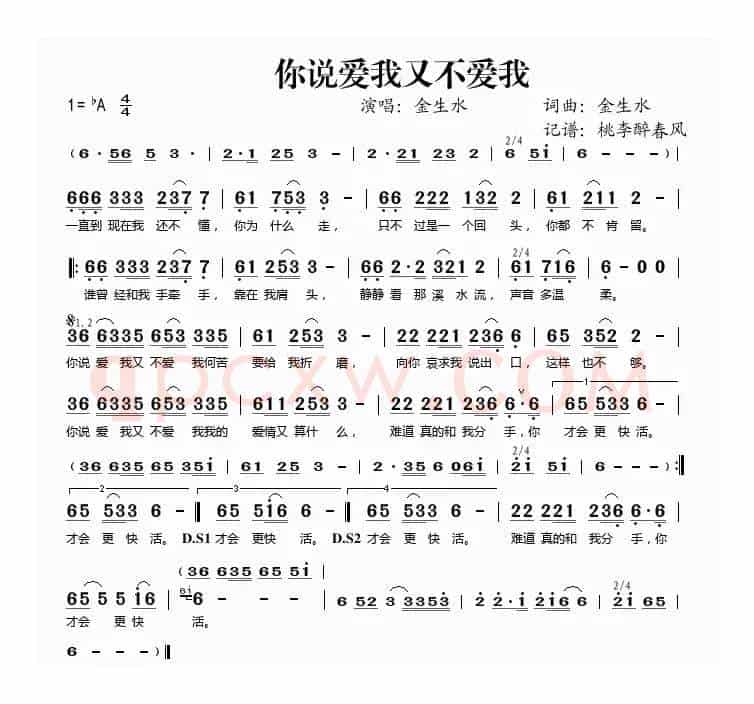 你说爱我又不爱我
1=♭A 4/4 演唱：金生水 词曲：金生水
记谱：桃李醉春风
2/4
( 6·56 5 3· | 2·1 25 3 - | 2·21 23 2 | 6 5i | 6 - - - )
666 333 237 7 | 61 753 3 - | 66 222 132 2 | 61 211 2 - |
一直到 现在我 还不 懂，你为 什么 走， 只不 过是一 个回 头，你都 不 肯 留。
2/4
‖: 66 333 237 7 | 61 253 3 - | 66 2·2 321 2 | 61 716 | 6 - 0 0
谁曾 经和我 手牵 手，靠在 我肩 头， 静静 看 那 溪 水 流，声音 多温 柔。
1、2
36 6335 653 335 | 61 253 3 - | 22 221 236 6 | 65 352 2 -
你说 爱 我又 不爱 我何苦 要给 我折 磨， 向你 哀求我 说出 口，这样 也不 够。
1
36 6335 653 335 | 611 253 3 - | 22 221 236 6·6 | 65 533 6 -
你说 爱 我又 不爱 我我的 爱情又 算什 么， 难道 真的和 我分 手，你 才会 更 快活。
2/4
(36 635 65 35i | 61 25 3 - | 2·35 6 061 | 2i 5i | 6 - - - ) :‖
2 3 4
65 533 6 - ‖ 65 5i6 6 - ‖ 65 533 6 - | 22 221 236 6·6 |
才会 更 快活。 D.S1 才会 更快 活。 D.S2 才会 更 快活。 难道 真的和 我分 手，你
(36 635 65 5i 2/4
65 5 5 i6 | 6i6 - - - | 6 52 3 3353 | 2·i 2i6 6i | 2i 65 |
才会 更快 活。
6 - - - )‖
qpcxw.COM